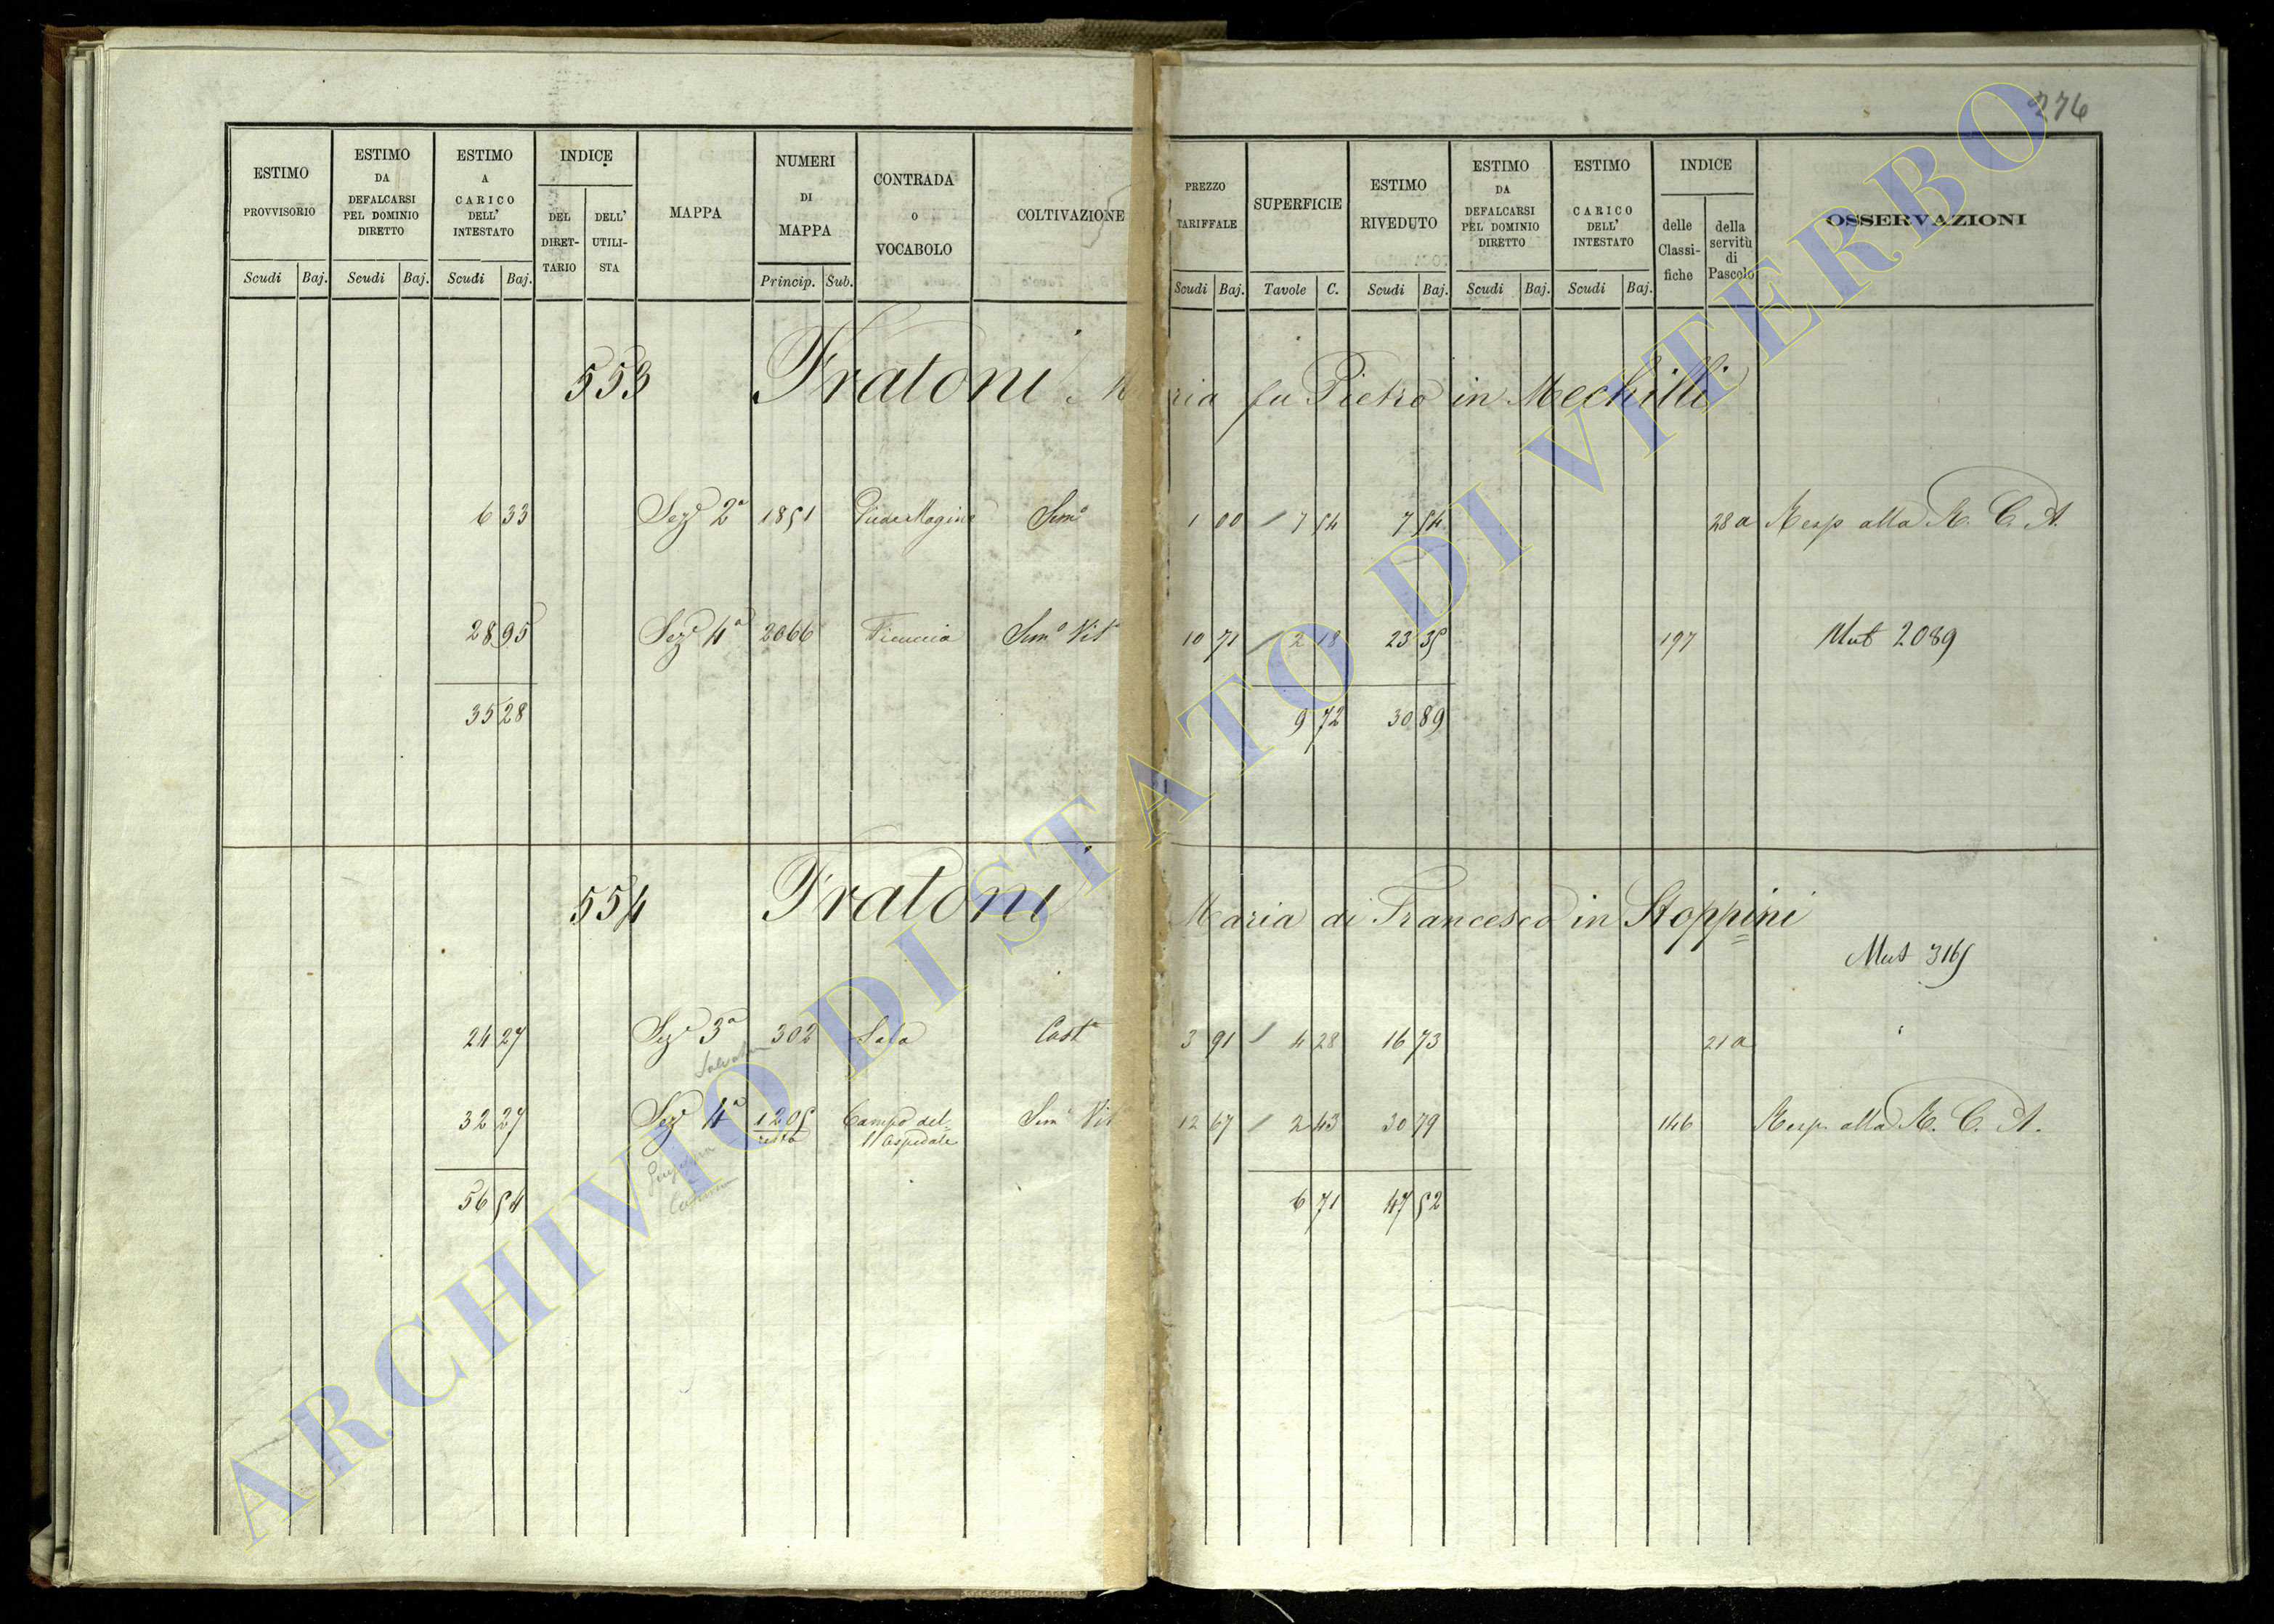 276
ESTIMO PROVVISORIO Scudi Baj.
ESTIMO DA DEFALCARSI PEL DOMINIO DIRETTO Scudi Baj.
ESTIMO A CARICO DELL' INTESTATO Scudi Baj.
INDICE DEL DIRET-TARIO DELL' UTILI-STA
MAPPA
NUMERI DI MAPPA Princip. Sub.
CONTRADA o VOCABOLO
COLTIVAZIONE
PREZZO TARIFFALE Scudi Baj.
SUPERFICIE Tavole C.
ESTIMO RIVEDUTO Scudi Baj.
ESTIMO DA DEFALCARSI PEL DOMINIO DIRETTO Scudi Baj.
ESTIMO CARICO DELL' INTESTATO Scudi Baj.
INDICE delle Classi-fiche della servitù di Pascolo
OSSERVAZIONI
553 Fratoni Maria fu Pietro in Mechilli
6 33 Sezᵉ 2ª 1851 Semº 1 00 7 54 7 54 28 a Resp alla R. C. A.
28 95 Sezᵉ 4ª 2066 Ficuccia Semº Vitº 10 71 2 18 23 35 197 Mut 2089
35 28 9 72 30 89
554 Fratoni Maria di Francesco in Stoppini
Mut 3165
24 27 Sezᵉ 3ª 302 Sala Castº 3 91 4 28 16 73 21 a
Salvatore
32 27 Sezᵉ 4ª 1205 resto Campo del-l'Ospedale Semº Vit 12 67 2 43 30 79 146 Resp. alla R. C. A.
56 54 6 71 47 52
ARCHIVIO DI STATO DI VITERBO